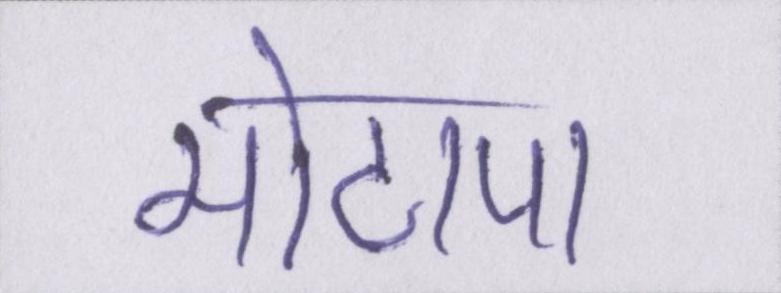 मोटापा